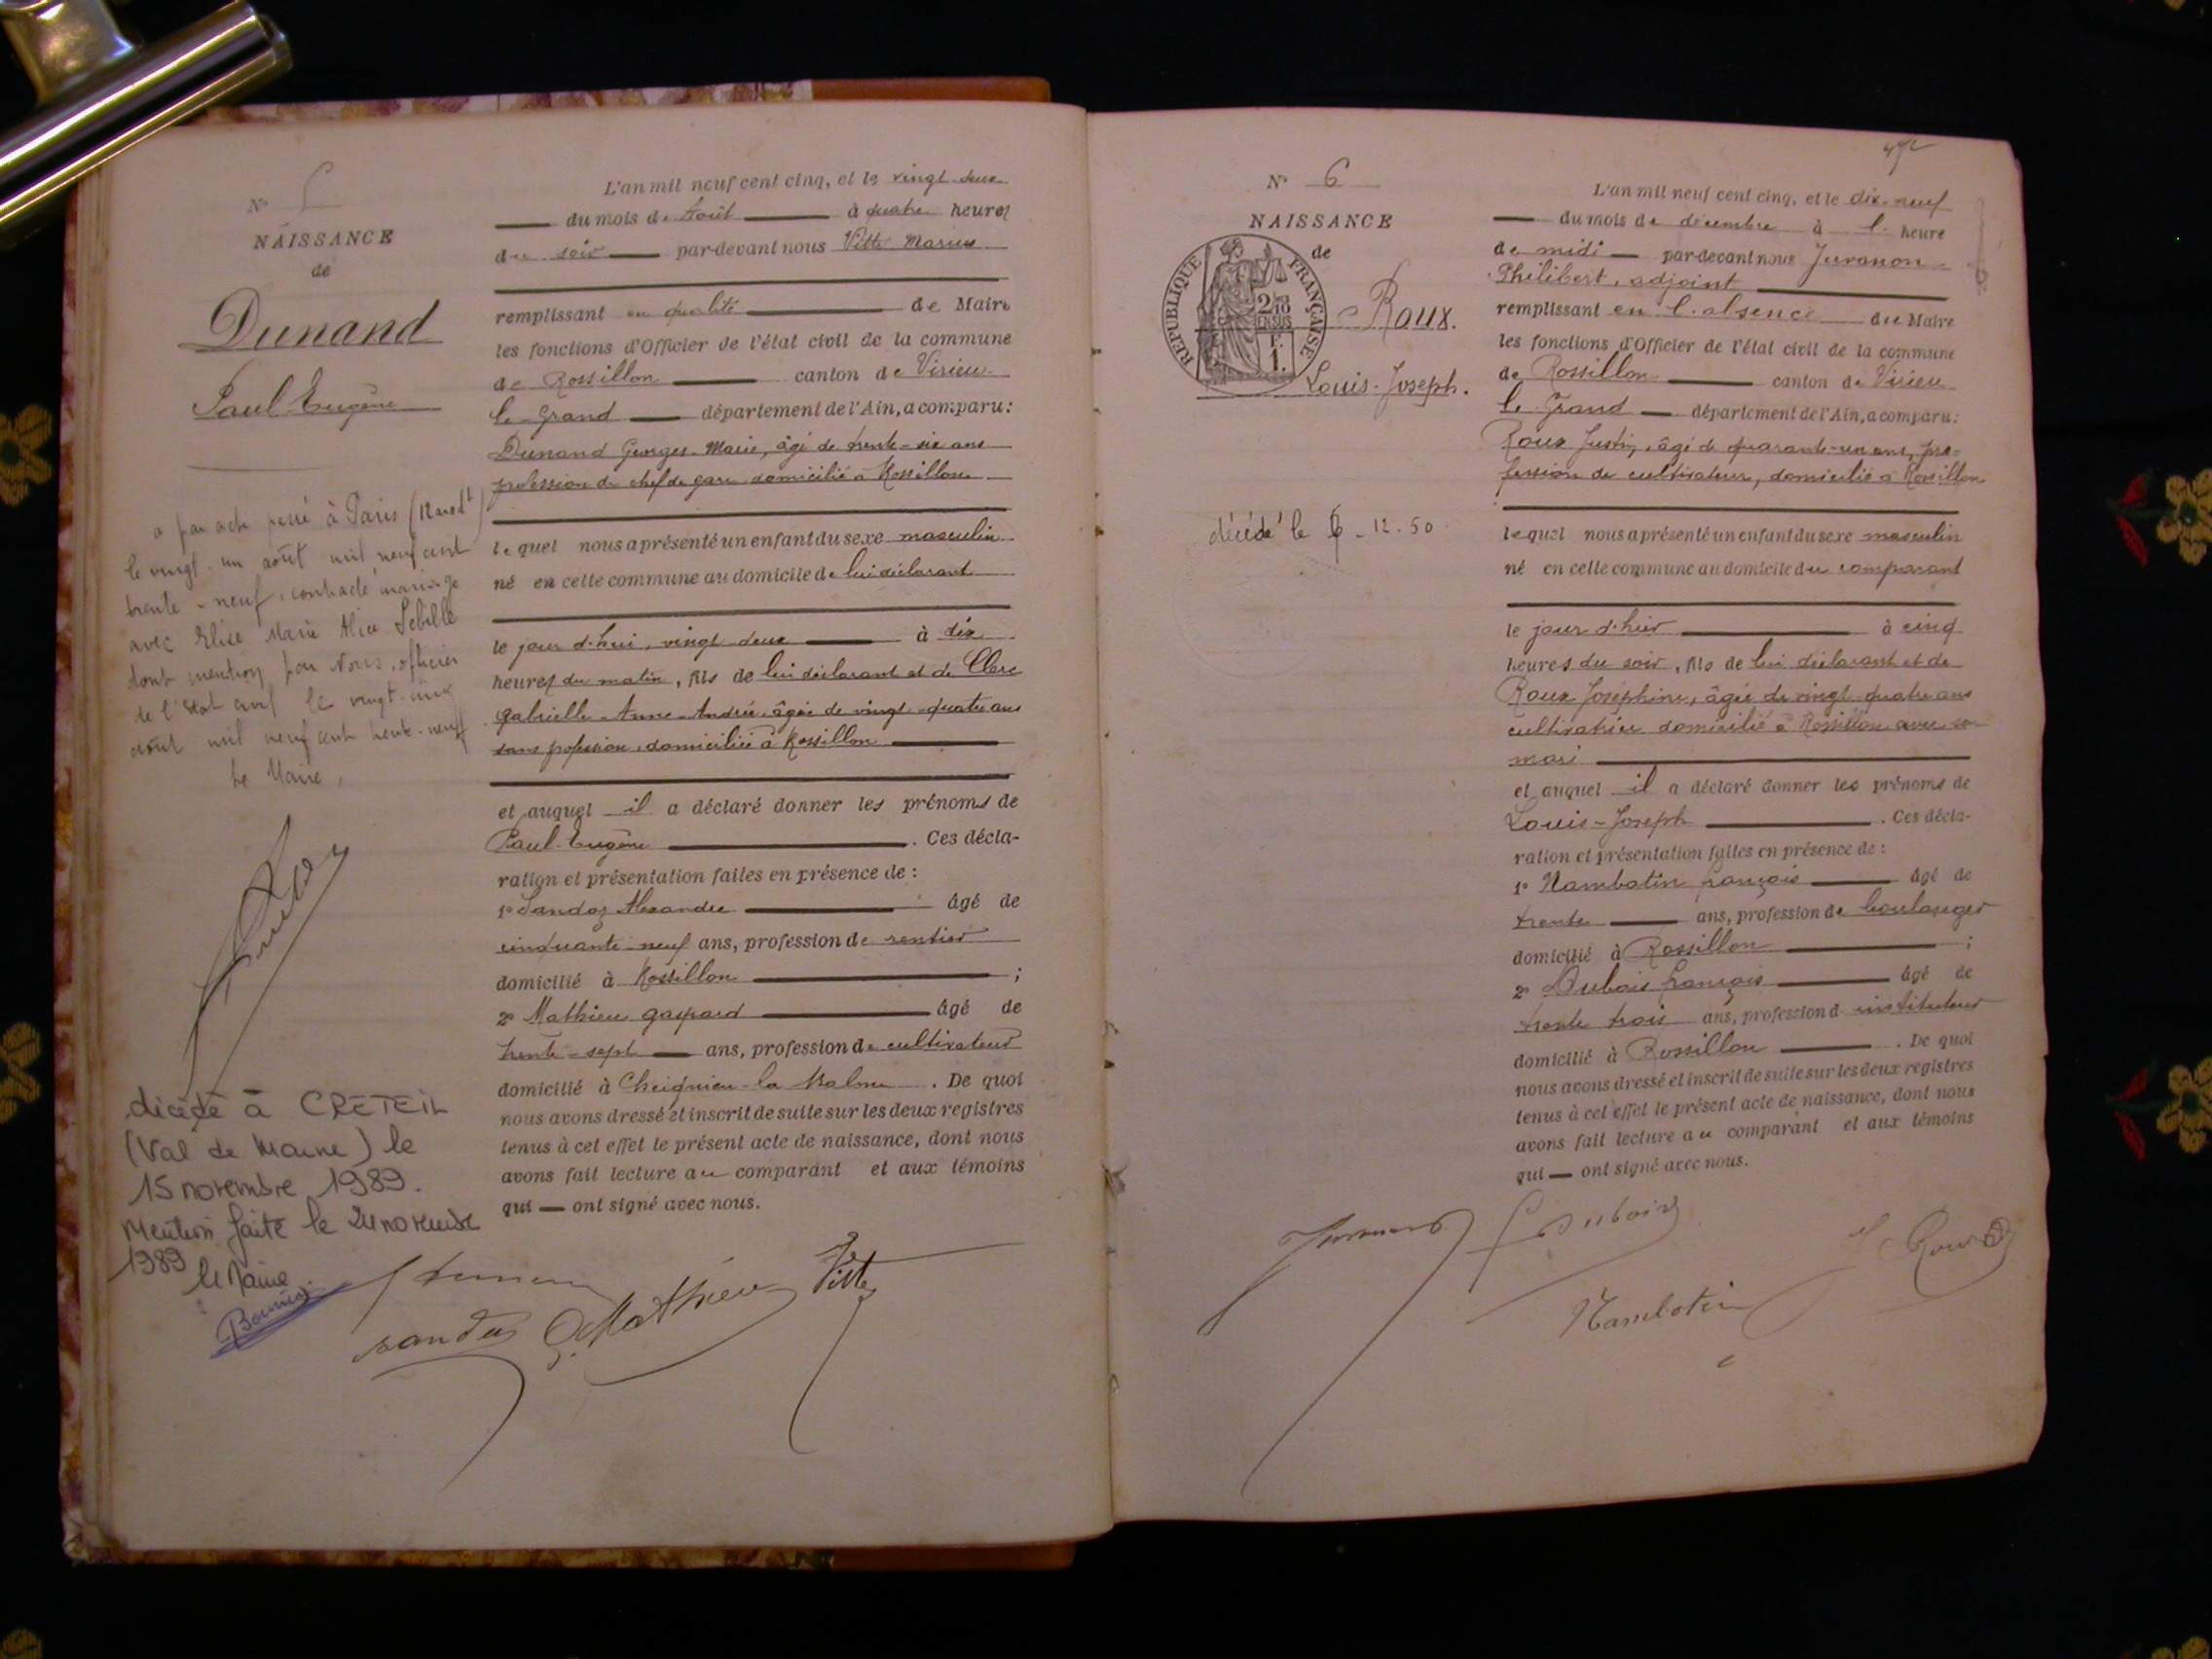 N°
NAISSANCE
de
Dunand
Paul-Eugène
a par acte passé à Paris (12
le vingt-un août mil neuf cent
trente-neuf, contracté mariage
avec Elise Marie Alice Sebille
dont mention par Nous, officier
de l'Etat civil le vingt-
août mil neuf cent trente-neuf
Le Maire,
décédé à CRETEIL
(Val de Marne) le
15 novembre 1989.
Mention faite le novembre
1989
le Maire
L'an mil neuf cent cinq, et le vingt-deux
du mois de Août à quatre heures
du soir par-devant nous Vitte Marius
remplissant en qualité de Maire
les fonctions d'Officier de l'état civil de la commune
de Rossillon canton de Virieu
le-Grand département de l'Ain, a comparu:
Dunand Georges-Marie, âgé de trente-six ans
profession de chef de gare domicilié à Rossillon
lequel nous a présenté un enfant du sexe masculin
né en cette commune au domicile de lui déclarant
le jour d'hui, vingt deux à dix
heures du matin, fils de lui déclarant et de Clerc
Gabrielle-Anne-Andrée, âgée de vingt-quatre ans
sans profession, domiciliée à Rossillon
et auquel il a déclaré donner les prénoms de
Paul-Eugène. Ces décla-
ration et présentation faites en présence de :
1° Sandoz Alexandre âgé de
cinquante-neuf ans, profession de rentier
domicilié à Rossillon ;
2° Mathieu Gaspard âgé de
trente-sept ans, profession de cultivateur
domicilié à Cheignieu-la-Balme. De quoi
nous avons dressé et inscrit de suite sur les deux registres
tenus à cet effet le présent acte de naissance, dont nous
avons fait lecture au comparant et aux témoins
qui — ont signé avec nous.
G. Mathieu
Vitte
N° 6
NAISSANCE
de
REPUBLIQUE FRANÇAISE
2/10 EN SUS
F. 1.
Roux.
Louis-Joseph.
décédé le 6-12.50
L'an mil neuf cent cinq, et le dix-neuf
du mois de décembre à l. heure
de midi par-devant nous Juvanon
Philibert, adjoint
remplissant en l'absence du Maire
les fonctions d'Officier de l'état civil de la commune
de Rossillon canton de Virieu
le Grand département de l'Ain, a comparu:
Roux Justin, âgé de quarante-un ans, pro-
fession de cultivateur, domicilié à Rossillon
lequel nous a présenté un enfant du sexe masculin
né en cette commune au domicile du comparant
le jour d'hier à cinq
heures du soir, fils de lui déclarant et de
Roux Joséphine, âgée de vingt-quatre ans
cultivatrice domicilié à Rossillon avec son
mari
et auquel il a déclaré donner les prénoms de
Louis-Joseph. Ces décla-
ration et présentation faites en présence de :
1° Nambotin François âgé de
trente ans, profession de boulanger
domicilié à Rossillon ;
2° Dubois François âgé de
trente trois ans, profession d instituteur
domicilié à Rossillon. De quoi
nous avons dressé et inscrit de suite sur les deux registres
tenus à cet effet le présent acte de naissance, dont nous
avons fait lecture au comparant et aux témoins
qui — ont signé avec nous.
Dubois
Roux
Nambotin